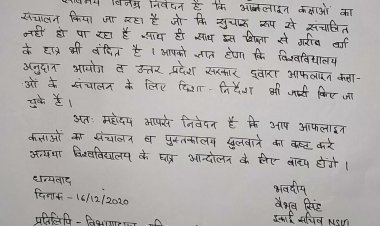 सविनय विनम्र निवेदन है कि ऑनलाइन कक्षाओं का
संचालन किया जा रहा है जो कि सुचारू रूप से संचालित
नहीं हो पा रहा है साथ ही साथ इस शिक्षा से गरीब वर्ग
के छात्र भी वंचित है । आपको ज्ञात होगा कि विश्वविद्यालय
अनुदान आयोग व उत्तर प्रदेश सरकार द्वारा आफलाइन कक्षा-
ओं के संचालन के लिए दिशा - निर्देश भी जारी किए जा
चुके है ।
अतः महोदय आपसे निवेदन है कि आप आफलाइन
कक्षाओं का संचालन व पुस्तकालय खुलवाने का कष्ट करें
अन्यथा विश्वविद्यालय के छात्र आन्दोलन के लिए बाध्य होंगे ।
धन्यवाद
दिनांक - 16/12/2020
भवदीय
वैभव सिंह
इकाई सचिव NSUI
प्रतिलिपि -